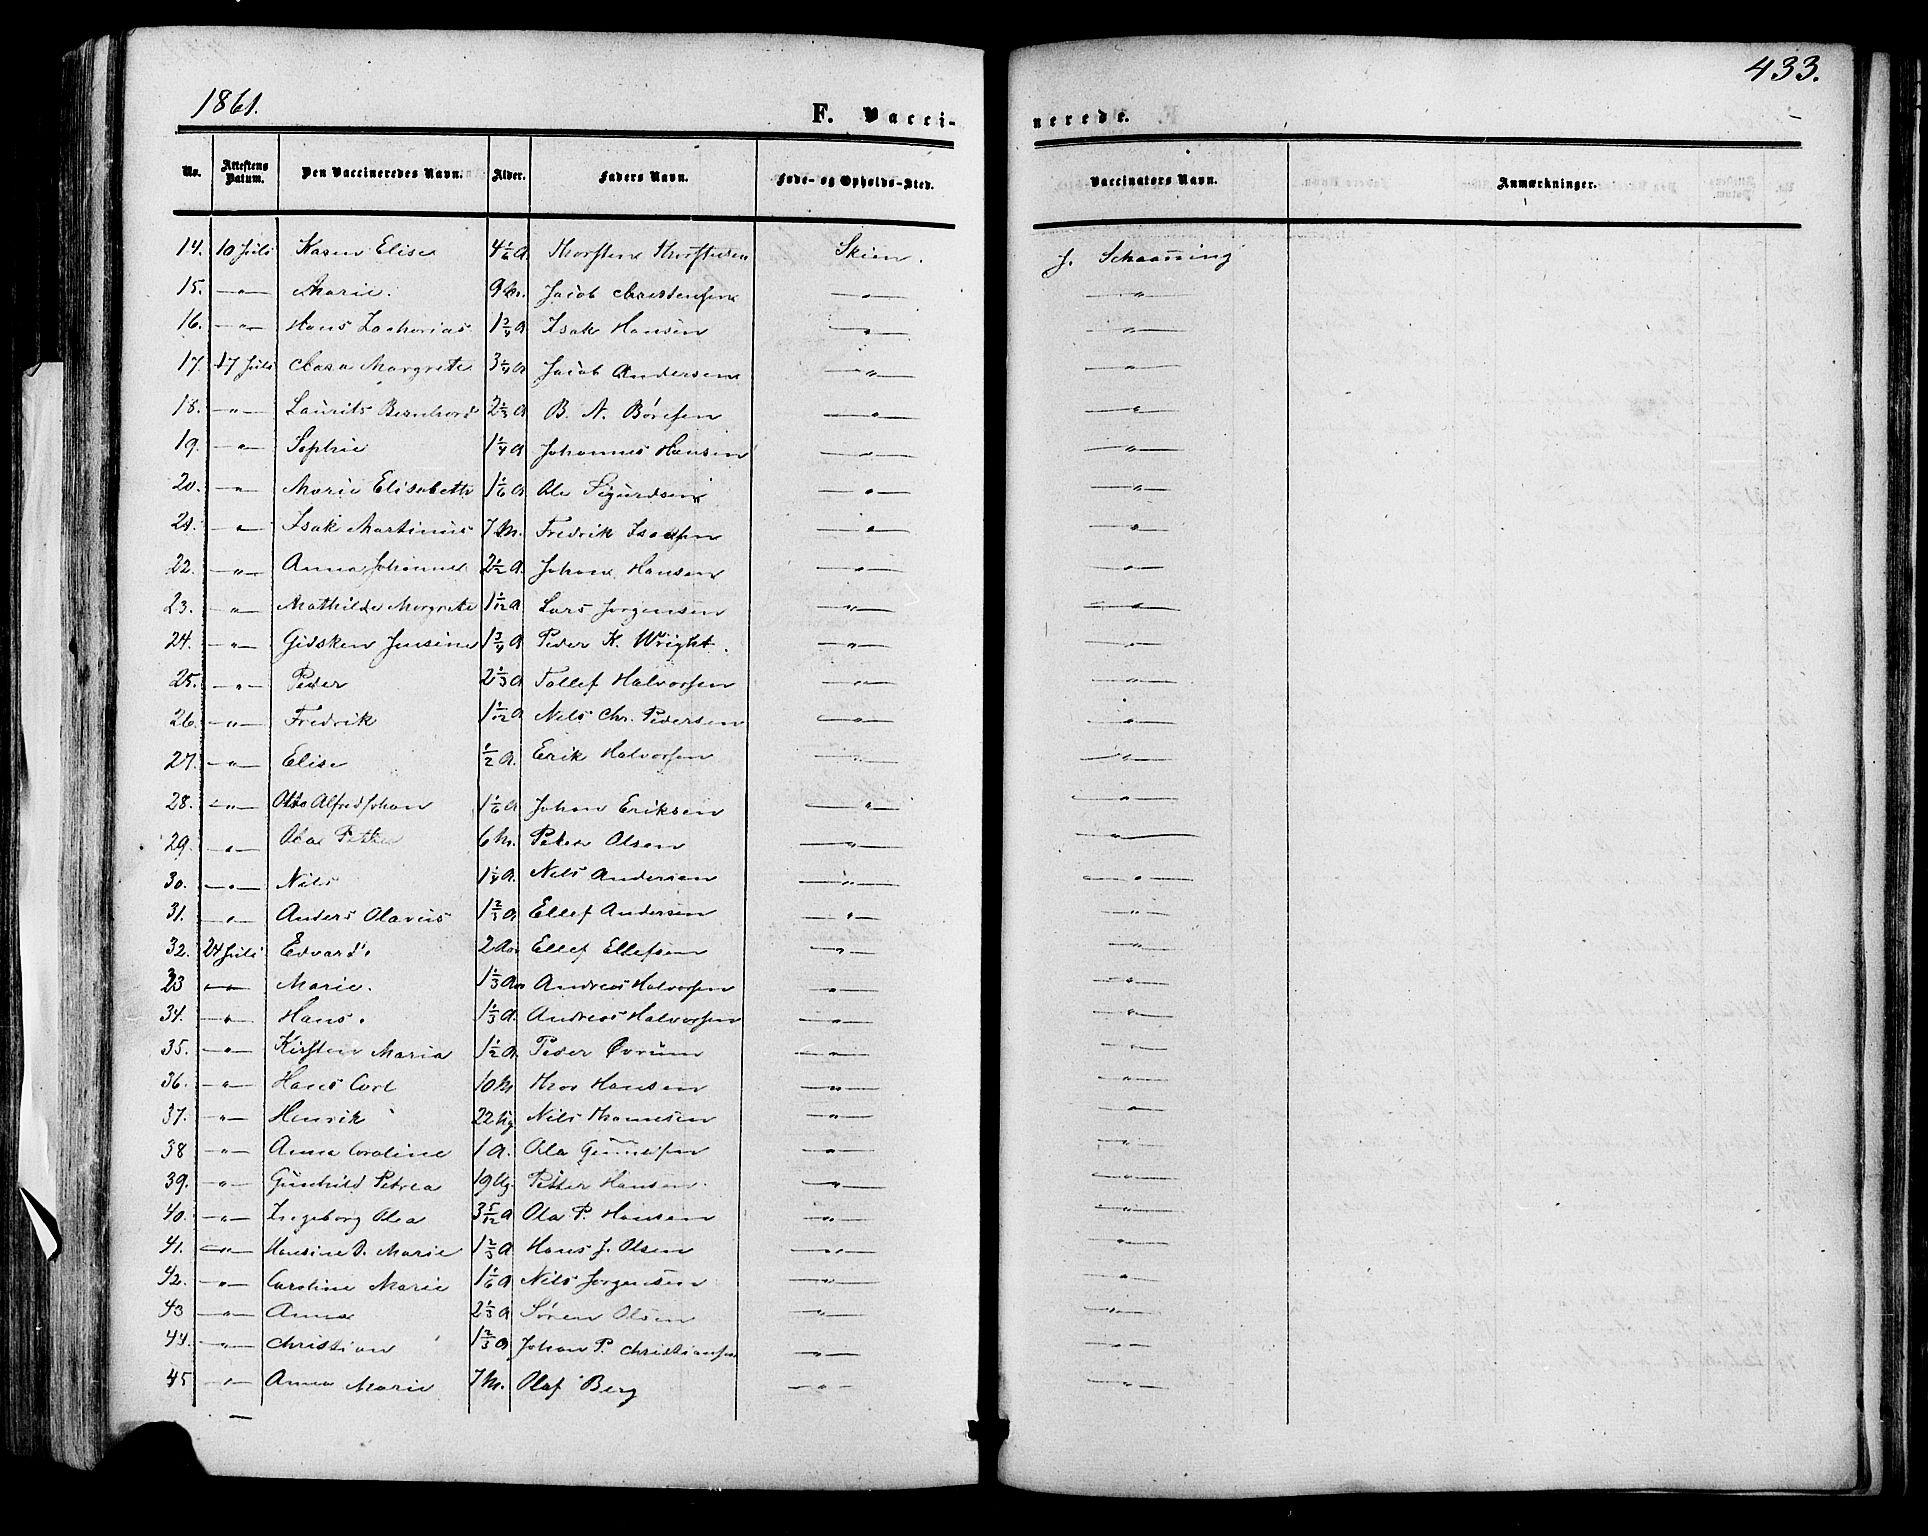 1861.
433.
F. Vacci-
nerede.
No. Attestens Datum. Den Vaccineredes Navn. Alder. Faders Navn. Føde- og Opholds-Sted. Vaccinators Navn. Anmærkninger.
14. 10 Juli Karen Elise 4 1/6 A Thorsten Thorstensen Skien. J. Schaanning
15. —"— Marie. 9 M. Jacob Christensen —"— —"—
16. —"— Hans Zacharias 1 3/4 A Isak Hansen —"— —"—
17. 17 Juli Clara Margrete 3 1/4 A Jacob Andersen —"— —"—
18. —"— Laurits Bernhard 2 1/3 A B. N. Børesen —"— —"—
19. —"— Sophie 1 1/4 A Johannes Hansen —"— —"—
20. —"— Marie Elisabeth 1 1/6 A Ole Sigurdsen —"— —"—
21. —"— Isak Martinius 7 M. Fredrik Isaksen —"— —"—
22. —"— Anna Johanne 2 1/2 A. Johan Hansen —"— —"—
23. —"— Mathilde Margrete 1 1/12 A Lars Jørgensen —"— —"—
24. —"— Gidsken Jensine 1 3/4 A Peder K. Wright. —"— —"—
25. —"— Peder 2 1/3 A Tollef Halvorsen —"— —"—
26. —"— Fredrik 1 1/12 A Nils Chr. Pedersen —"— —"—
27. —"— Elise 1/2 A. Erik Halvorsen —"— —"—
28. —"— Alfred Johan 1 1/6 A Johan Eriksen —"— —"—
29. —"— Petter 6 M. Peter Olsen —"— —"—
30. —"— Nils 1 1/4 A. Nils Andersen —"— —"—
31. —"— Anders Olavus 1 2/3 A Ellef Andersen —"— —"—
32. 24 Juli Edvard. 2 Aar Ellef Ellefsen —"— —"—
33 —"— Marie. 1 1/3 Aar Andreas Halvorsen —"— —"—
34. —"— Hans. 1 1/3 A. Andreas Halvorsen —"— —"—
35. —"— Kirsten Maria 1 1/2 A. Peder Øvrum —"— —"—
36. —"— Hans Carl 10 M Thor Hansen —"— —"—
37. —"— Henrik 22 Ug. Nils Thomesen —"— —"—
38 —"— Anna Caroline 1 A. Ola —"— —"—
39. —"— Gunhild Petrea 19 Ug. Petter Hansen. —"— —"—
40. —"— Ingeborg Olea 3 5/12 A Ola P. Hansen —"— —"—
41. —"— Hansine D. Marie 1 2/3 A Hans J. Olsen —"— —"—
42. —"— Caroline Marie 1 1/6 A Nils Jørgensen —"— —"—
43 —"— Anna 2 1/3 A Søren Olsen —"— —"—
44. —"— Christian 1 2/3 A Johan P. Christiansen —"— —"—
45 —"— Anna Marie 7 M. Olaf Berg —"— —"—